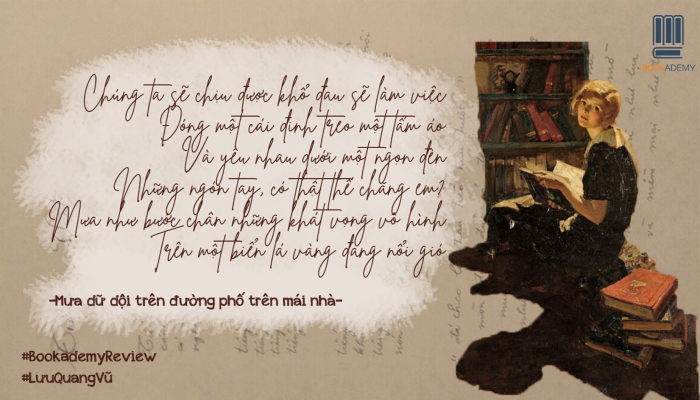 BOOKADEMY
Chúng ta sẽ chịu được khổ đau sẽ làm việc
Đóng một cái đinh treo một tấm áo
Và yêu nhau dưới một ngọn đèn
Những ngón tay, có thật thế chăng em?
Mưa như bước chân những khát vọng vô hình
Trên một biển lá vàng đang nổi gió
-Mưa dữ dội trên đường phố trên mái nhà-
#BookademyReview
#LưuQuangVũ